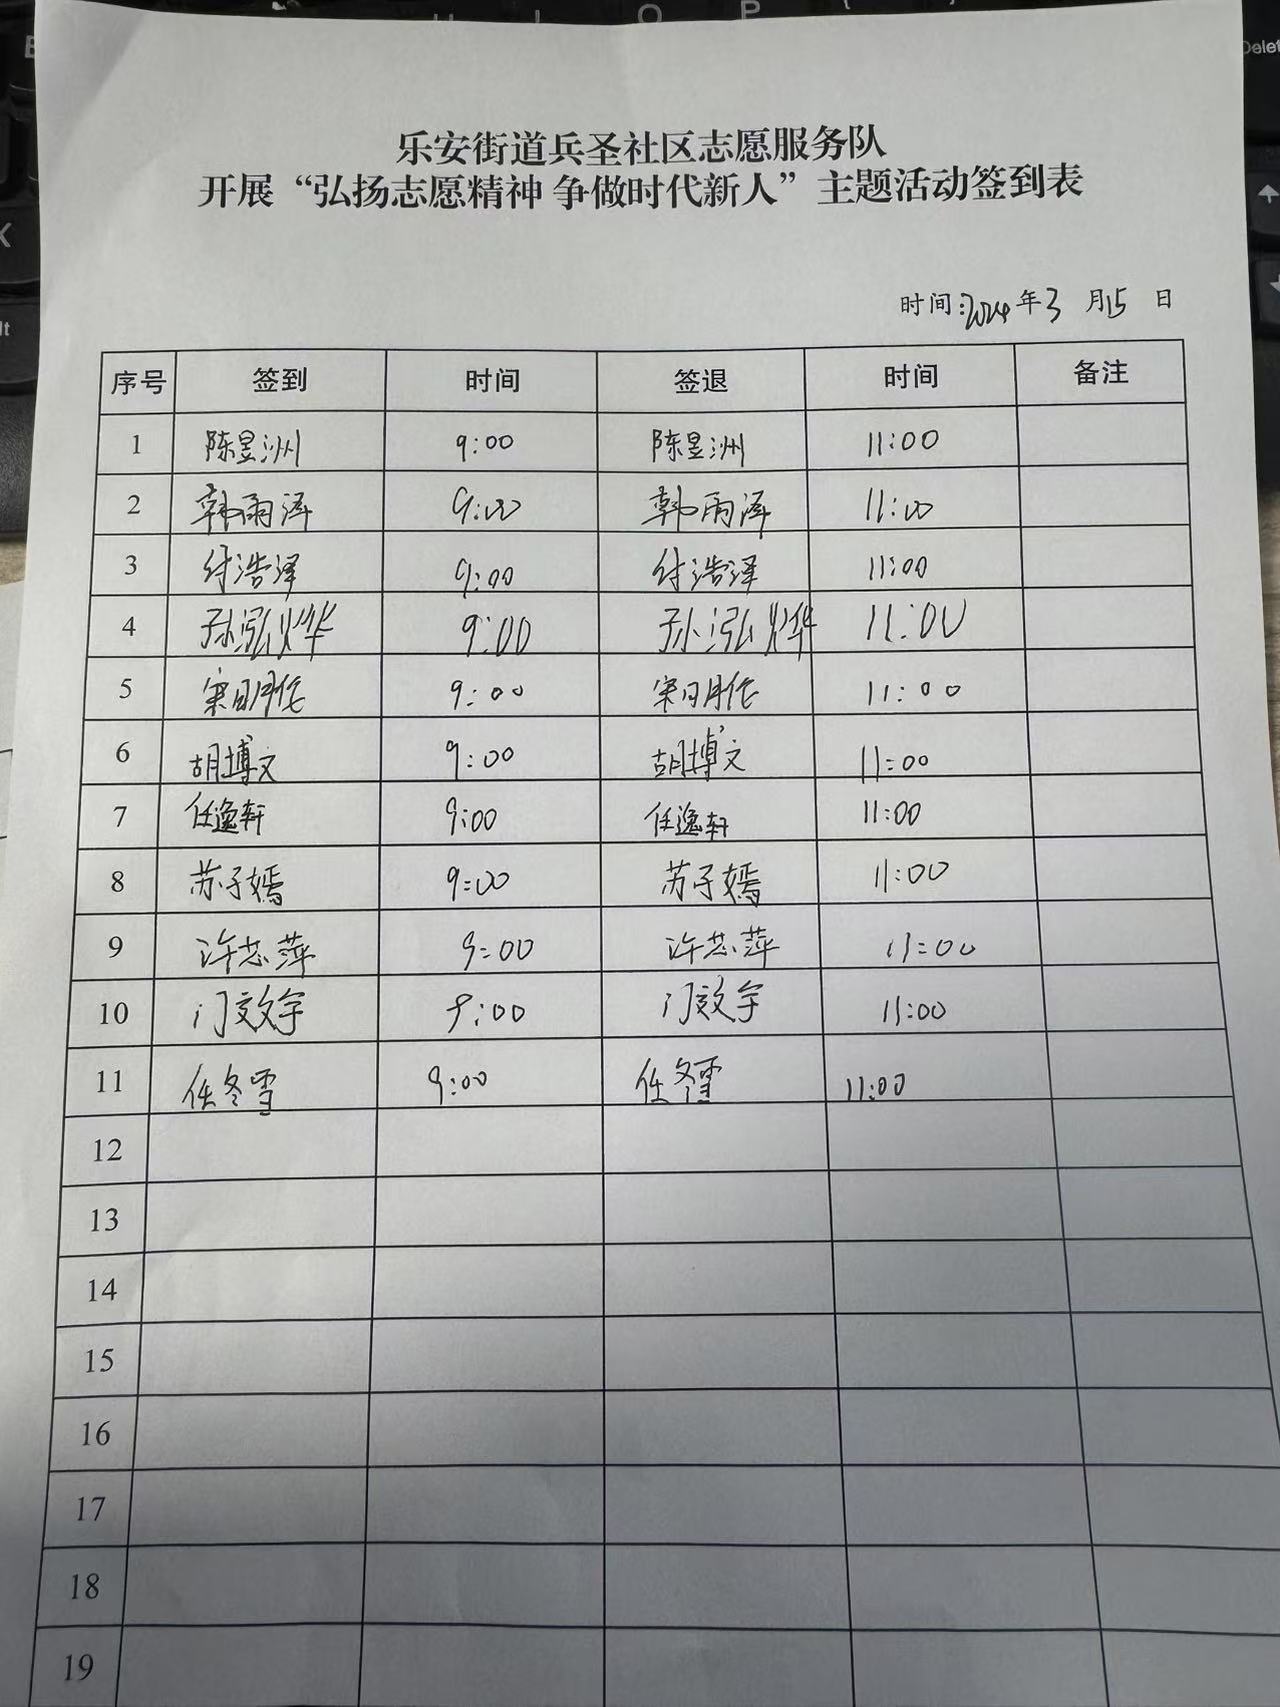 乐安街道兵圣社区志愿服务队
开展“弘扬志愿精神 争做时代新人”主题活动签到表
时间:2024年3月15日
序号 签到 时间 签退 时间 备注
1 陈昱洲 9:00 陈昱洲 11:00
2 韩雨泽 9:00 韩雨泽 11:00
3 付浩泽 9:00 付浩泽 11:00
4 孙泓烨 9:00 孙泓烨 11:00
5 9:00 11:00
6 胡博文 9:00 胡博文 11:00
7 任逸轩 9:00 任逸轩 11:00
8 苏子嫣 9:00 苏子嫣 11:00
9 许芯萍 9:00 许芯萍 11:00
10 9:00 11:00
11 任冬雪 9:00 任冬雪 11:00
12
13
14
15
16
17
18
19